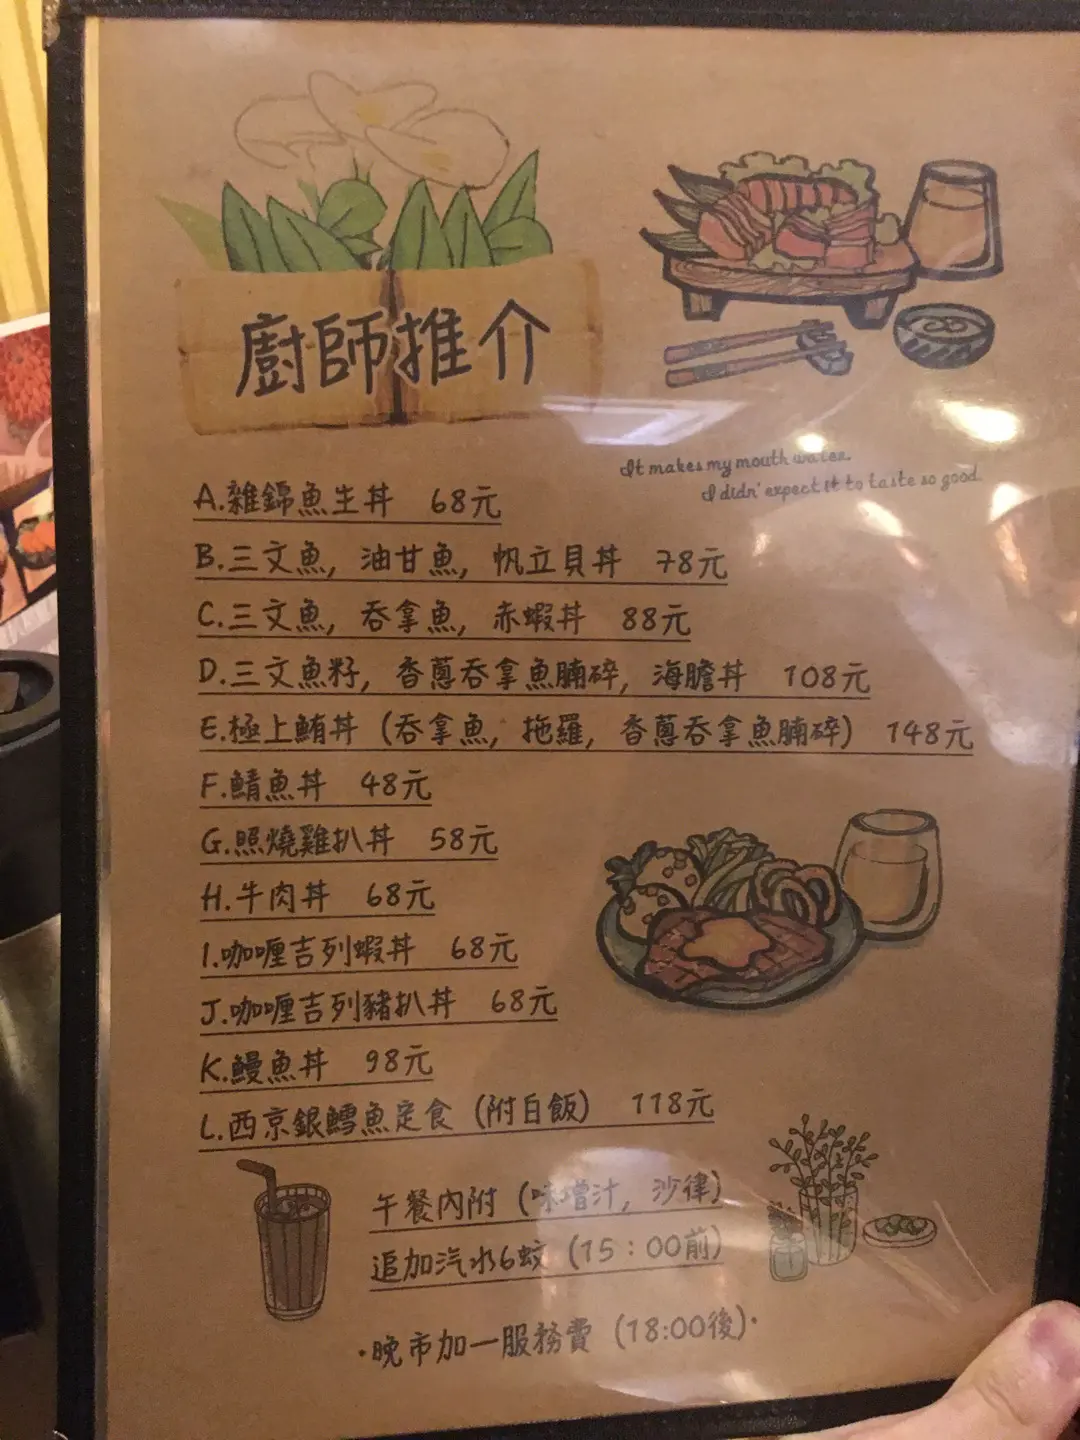 廚師推介
It makes my mouth water.
I didn' expect it to taste so good.
A.雜錦魚生丼 68元
B.三文魚, 油甘魚, 帆立貝丼 78元
C.三文魚, 吞拿魚, 赤蝦丼 88元
D.三文魚籽, 香蔥吞拿魚腩碎, 海膽丼 108元
E.極上鮪丼 (吞拿魚, 拖羅, 香蔥吞拿魚腩碎) 148元
F.鯖魚丼 48元
G.照燒雞扒丼 58元
H.牛肉丼 68元
I.咖喱吉列蝦丼 68元
J.咖喱吉列豬扒丼 68元
K.鰻魚丼 98元
L.西京銀鱈魚定食 (附白飯) 118元
午餐內附 (味噌汁, 沙律)
追加汽水6蚊 (15:00前)
·晚市加一服務費 (18:00後)·